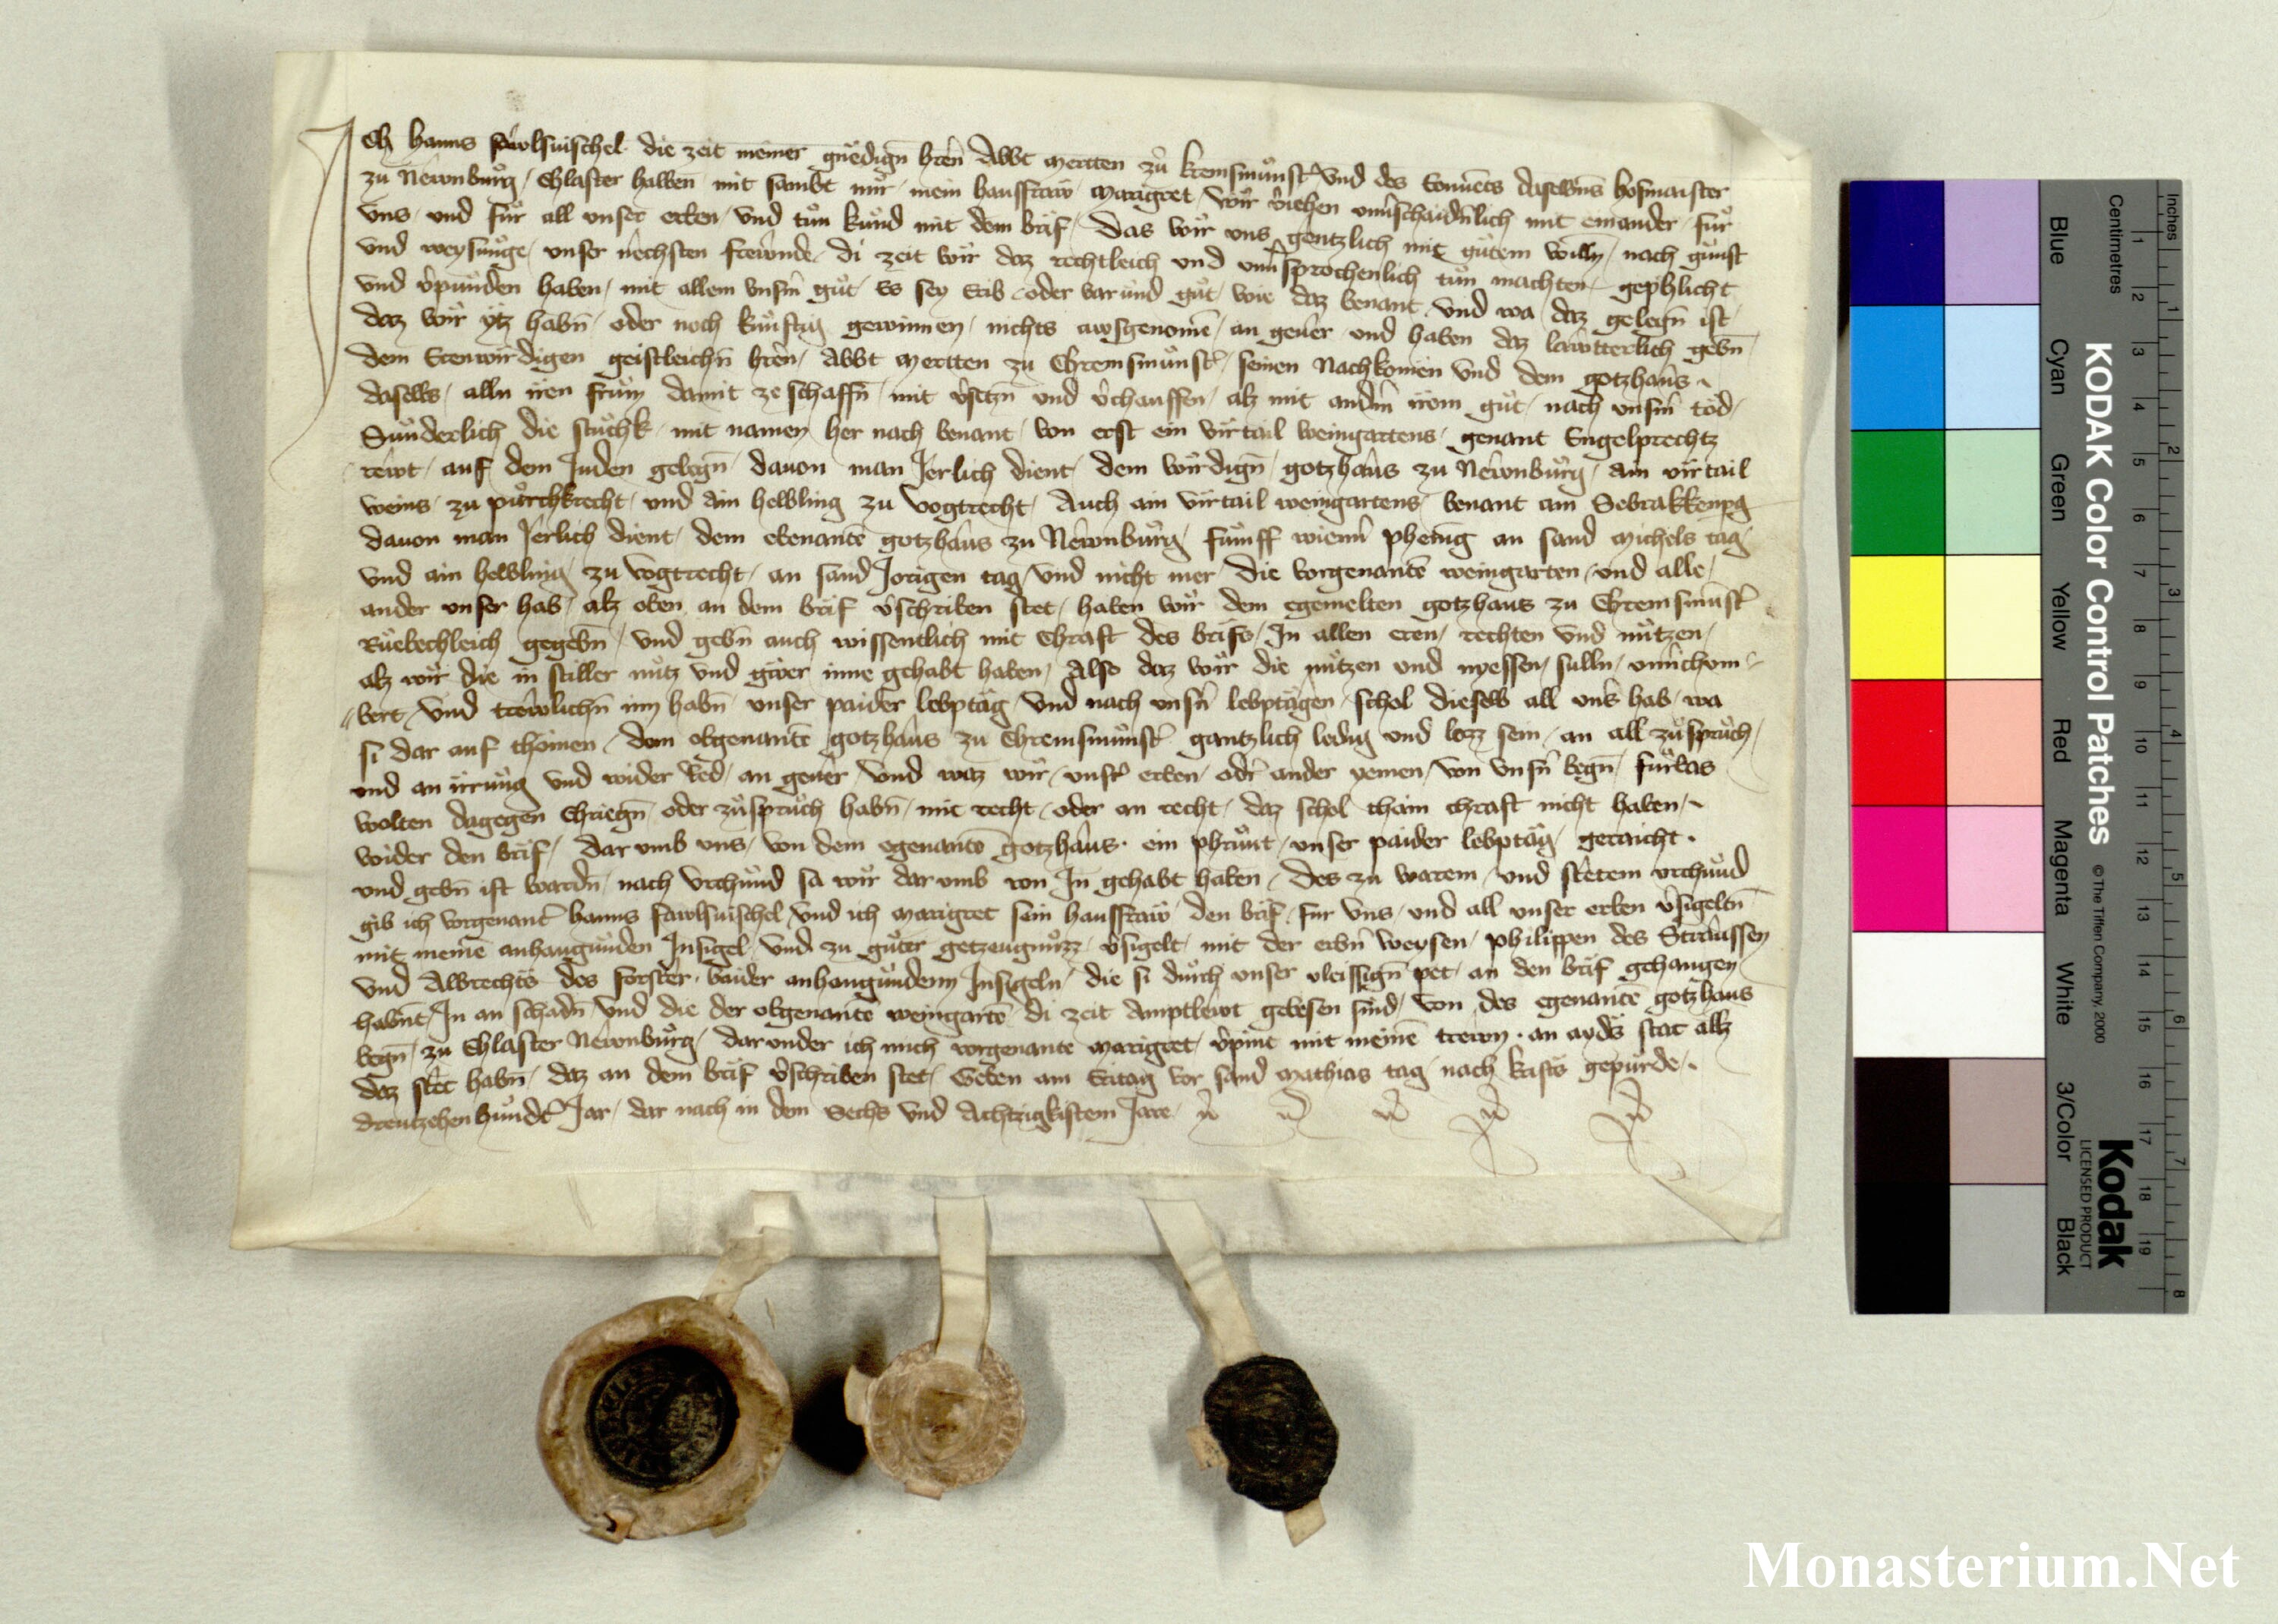 Ich hanns die zeit meiner gnedign̄ hren̄ Abbt Mertten zů kremsmůnst̄ vnd des Conuēts daselbns̄ hofmaister
zu Newnbůrg Chlaster halben̄ mit sambt mir mein hausfraw Margret wir v̄iehen vnu̍schaidn̄lich mit einander fůr
vns vnd fůr all vnser erben vnd tůn kůnd mit dem brif Das wir vns gentzlich mit gůtem willn nach gůnst
vnd weysunge vnser nechsten frewnde di zeit wir daz rechtleich vnd vnu̍sprochenlich tůn machten gephlicht
vnd v̍punden haben mit allem vnsm̄ gůt Es sey Erib oder varund gůt wie daz benant vnd wa daz gelegn̄ ist
daz wir ytz habn̄ oder noch kůnftig gewinnen nichts awsgenomē an geuer vnd haben daz lawtterlich gebn̄
dem Erenwirdigen geistleichn̄ hren̄ Abbt Mertten zu Chremsmůnst̄ seinen Nachkomen vnd dem gotzhaus
daselbs alln iren frům damit ze schaffn̄ mit v̍setzn̄ vnd v̍chauffen alz mit andm̄ irom gůt nach vnsm̄ tod
Sunderlich die stuchk mit namen her nach benant von erst ein virtail weingartens genant Engelprechtz
rewt auf dem Juden gelegn̄ dauon man Jerlich dient dem wirdign̄ gotzhaus zu Newnbůrg ain virtail
weins zu půrchkrecht vnd ain helbling zu vogtrecht Auch ain virtail weingartens benant am Sebrakkenpg
dauon man Jerlich dient dem obenantē gotzhaus zu Newnbůrg fůmff wienn̄ phenig an sand Michels tag
vnd ain helbling zu vogtrecht an sand Jorigen tag vnd nicht mer Die vorgenantē weingarten vnd alle
ander vnser hab alz oben an dem brif v̍schriben stet haben wir dem egemelten gotzhaus zu Chremsmůnst̄
Ruebechleich gegebn̄ vnd gebn̄ auch wissentlich mit Chraft des brifs In allen eren rechten vnd nůtzen
alz wir die in stiller nůtz vnd gwer inne gehabt haben Also daz wir die nůtzen vnd nyessen sulln vnu̍chom
bert vnd trewlichn̄ inn habn̄ vnser paider lebptåg vnd nach vnsn̄ lebptågen schol dieselb all vnser hab wa
si dar auf chomen dem obgenantē gotzhaus zu Chremsmůnst̄ gantzlich ledig vnd lozz sein an all zůsprůch
vnd an irrung vnd wider red an geuer vnd waz wir vnser erben odr̄ ander yemen von vnsn̄ wegn̄ fůrbas
wolten dagegen chriegn̄ oder zůsprůch habn̄ mit recht oder an recht daz schol chain chraft nicht haben
wider den brif Dar vmb vns von dem egenantē gotzhaus ein phrůnt vnser paider lebptåg geraicht
vnd gebn̄ ist wordn̄ nach vrchůnd so wir dar vmb von In gehabt haben Des zu warem vnd stetem vrchůnd
gib ich vorgenant̄ hanns vnd ich Margret sein hausfraw den brif fur vns vnd all vnser erben v̍sigeltn̄
mit meinē anhangunden Insigel vnd zu gůter getzeugnůzz v̍sigelt mit der erbn̄ weysen philippen des Straussen
vnd Albrechts des forster baider anhangundem Insigeln die si durch vnser vleissign̄ pet an den brif gehangen
habnt In an schadn̄ vnd die der obgenantē weingartē di zeit Amptlewt gebesen sind von des egenantē gotzhaus
wegn̄ zu Chlaster Newnbůrg dar vnder ich mich vorgenante Margret v̍pint mit meinē trewn an ayds stat allz
daz stet habn̄ daz an dem brif v̍schriben stet Geben am Eritag vor sand Mathias tag nach krists gepurde
dreutzehenhundt̄ Jar dar nach in dem Sechs vnd Achtzigkistem Jare
KODAK Color Control Patches
© The Tiffen Company, 2000
Kodak
LICENSED PRODUCT
Inches
Centimetres
Blue
Cyan
Green
Yellow
Red
Magenta
White
3/Color
Black
1 2 3 4 5 6 7 8 9 10 11 12 13 14 15 16 17 18 19
1 2 3 4 5 6 7 8
Monasterium.Net